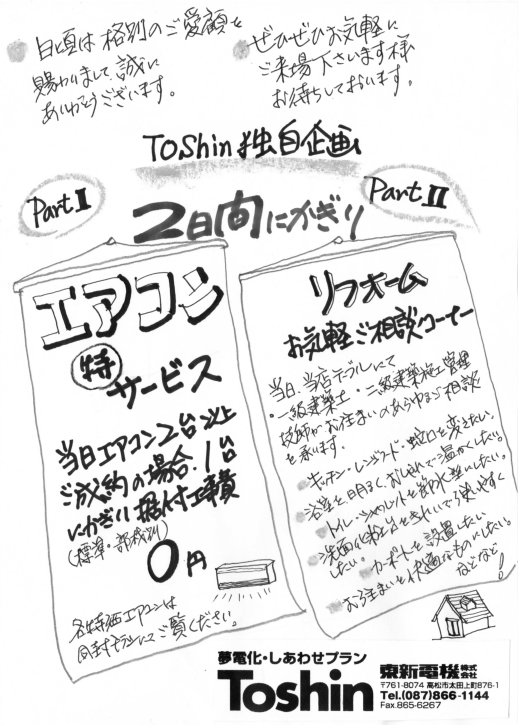 日頃は格別のご愛顧を
賜わりまして、誠に
ありがとうございます。
ぜひぜひお気軽に
ご来場下さいます様
お待ちしております。
TOShin独自企画
2日間にかぎり
Part I
エアコン
特
サービス
当日エアコン2台以上
ご成約の場合、1台
にかぎり据付工事費
(標準・部材別)
0円
各特価エアコンは
同封チラシにてご覧ください。
Part II
リフォーム
お気軽ご相談コーナー
当日、当店テーブルにて
・一級建築士・二級建築施工管理
技師がお住まいのあらゆるご相談
を承ります。
キッチン・レンジフード・蛇口を変えたい。
浴室を明るくおしゃれで温かくしたい。
トイレ・シャワレットを節水型にしたい。
洗面化粧台をきれいで使いやすく
したい。
カーポートを設置したい
お住まいを快適なものにしたい。
などなど!
夢電化・しあわせプラン
Toshin
東新電機株式会社
〒761-8074 高松市太田上町876-1
Tel.(087)866-1144
Fax.865-6267